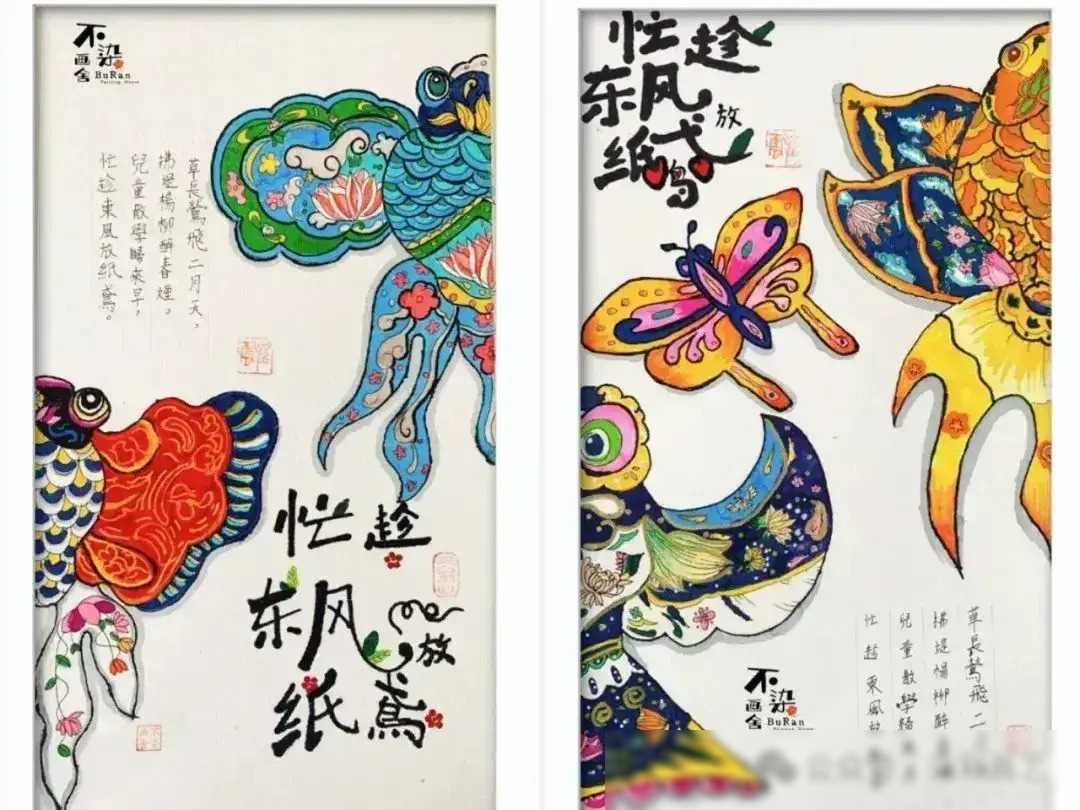 不染
画舍
BuRan
草長鶯飛二月天，
拂堤楊柳醉春煙。
兒童散學歸來早，
忙趁東風放紙鳶。
忙趁
东风放
纸鸢
忙趁
东风放
纸鸢
草長鶯飛二
拂堤楊柳醉
兒童散學歸
忙趁東風放
不染
画舍
BuRan